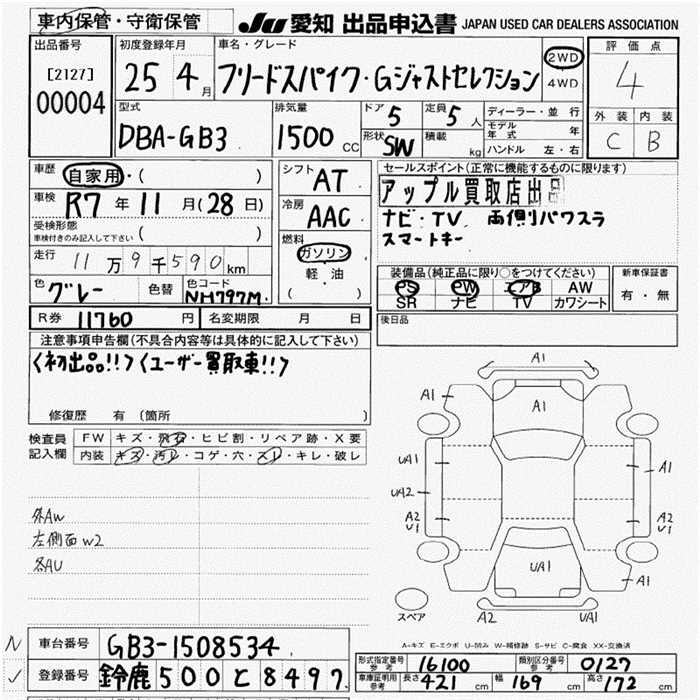 車内保管・守衛保管 JU 愛知 出品申込書 JAPAN USED CAR DEALERS ASSOCIATION
出品番号 [2127] 00004
初度登録年月 25年 4月
車名・グレード フリードスパイク・Gジャストセレクション
2WD
4WD
評価点 4
外装 内装
C B
型式 DBA-GB3
排気量 1500 CC
ドア 5 定員 5人
形状 SW 積載 kg
ディーラー・並行
モデル年式 年
ハンドル 左・右
車歴 自家用・( )
車検 R7年 11月(28日)
受検形態 車検付きのみ記入して下さい ( )
走行 11万9千590km
色 グレー 色替 色コード NH797M
シフト AT
冷房 AAC
燃料 ガソリン
軽・油
( )
セールスポイント(正常に機能するものに限ります)
アップル買取店出品
ナビ・TV 両側パワスラ
スマートキー
装備品(純正品に限り○をつけてください)
PS PW エアB AW
SR ナビ TV カワシート
新車保証書
有・無
R券 11760円 名変期限 月 日
後日品
注意事項申告欄(不具合内容等は具体的に記入して下さい)
<初出品!!><ユーザー買取車!!>
修復歴 有 (箇所 )
検査員記入欄
FW キズ・飛石・ヒビ割・リペア跡・X要
内装 キズ・汚レ・コゲ・穴・スレ・キレ・破レ
外AW
左側面W2
各AU
A1
A1
A1
UA1
A1
UA2
A2
V1
A2
V1
UA1
A1
スペア
A2
UA1
A-キズ E-エクボ U-凹み W-補修跡 S-サビ C-腐食 XX-交換済
N 車台番号 GB3-1508534
✓ 登録番号 鈴鹿 500 と 8497
形式指定番号 参考 16100 類別区分番号 参考 0127
車庫証明用 参考 長さ 421 cm 幅 169 cm 高さ 172 cm